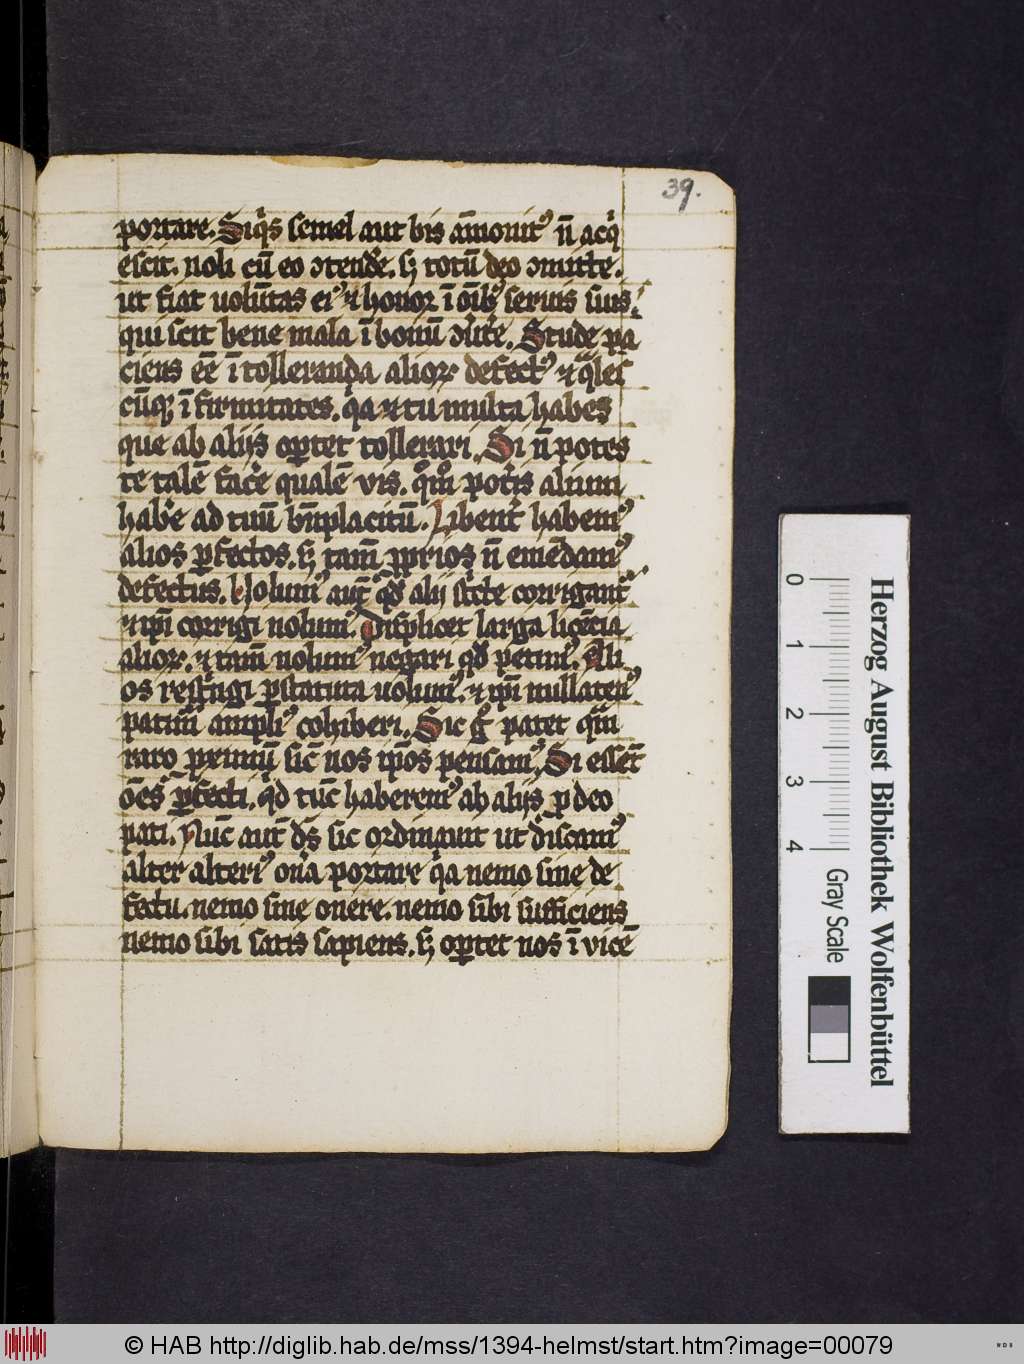 39.
portare. Siq̓s semel aut bis am̄onit᷒ n̄ acq̓
escit. noli cū eo ↄtende᷒. sꝫ totū deo ↄmitte.
ut fiat uolūtas ei᷒ ⁊ honor ī oīb᷒ seruis suis.
qui scit bene mala ī bonū ↄu᷒te᷒. Stude pa
ciens eē ī tolleranda alioꝝ defect᷒ ⁊ q̄les
cūqꝫ ī firmitates. q̓a ⁊ tu multa habes
que ab aliis oꝑtet tollerari. Si n̄ potes
te talē fac᷒e qualē vis. q̊m̊ pot᷒is alium
hab᷒e ad tuū bn̄placitū. Libent᷒ habem᷒
alios ꝑfectos. sꝫ tam̄ ꝓprios n̄ emēdam᷒
defectus. Uolum᷒ aut̄ qđ alij st᷒cte corrigant᷒
⁊ ip̄i corrigi nolum᷒. Displicet larga licēcia
alioꝝ. ⁊ tam̄ nolum᷒ negari qđ petim᷒. Ali
os rest᷒ngi ꝑ statuta uolum᷒. ⁊ ip̄i nullaten᷒
patim᷒ ampli᷒ cohiberi. Sic g̊ patet q̄m
raro proximū sic̄ nos ip̄os pensam᷒. Si essēt
oēs ꝑfecti. qđ tūc haberem᷒ ab aliis p deo
pati. Nūc aut̄ ds̄ sic ordinauit ut discam᷒
alter alteri᷒ on᷒a portare q̓a nemo sine de
fectu. nemo sine onere. nemo sibi sufficiens
nemo sibi satis sapiens. sꝫ oꝑtet nos ī vicē
Herzog August Bibliothek Wolfenbüttel
0 1 2 3 4 Gray Scale
© HAB http://diglib.hab.de/mss/1394-helmst/start.htm?image=00079